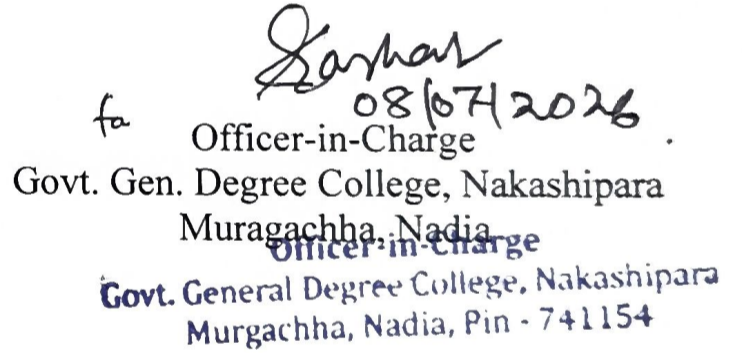 08/07/2026
fa
Officer-in-Charge
Govt. Gen. Degree College, Nakashipara
Muragachha, Nadia
Officer-in-Charge
Govt. General Degree College, Nakashipara
Murgachha, Nadia, Pin - 741154